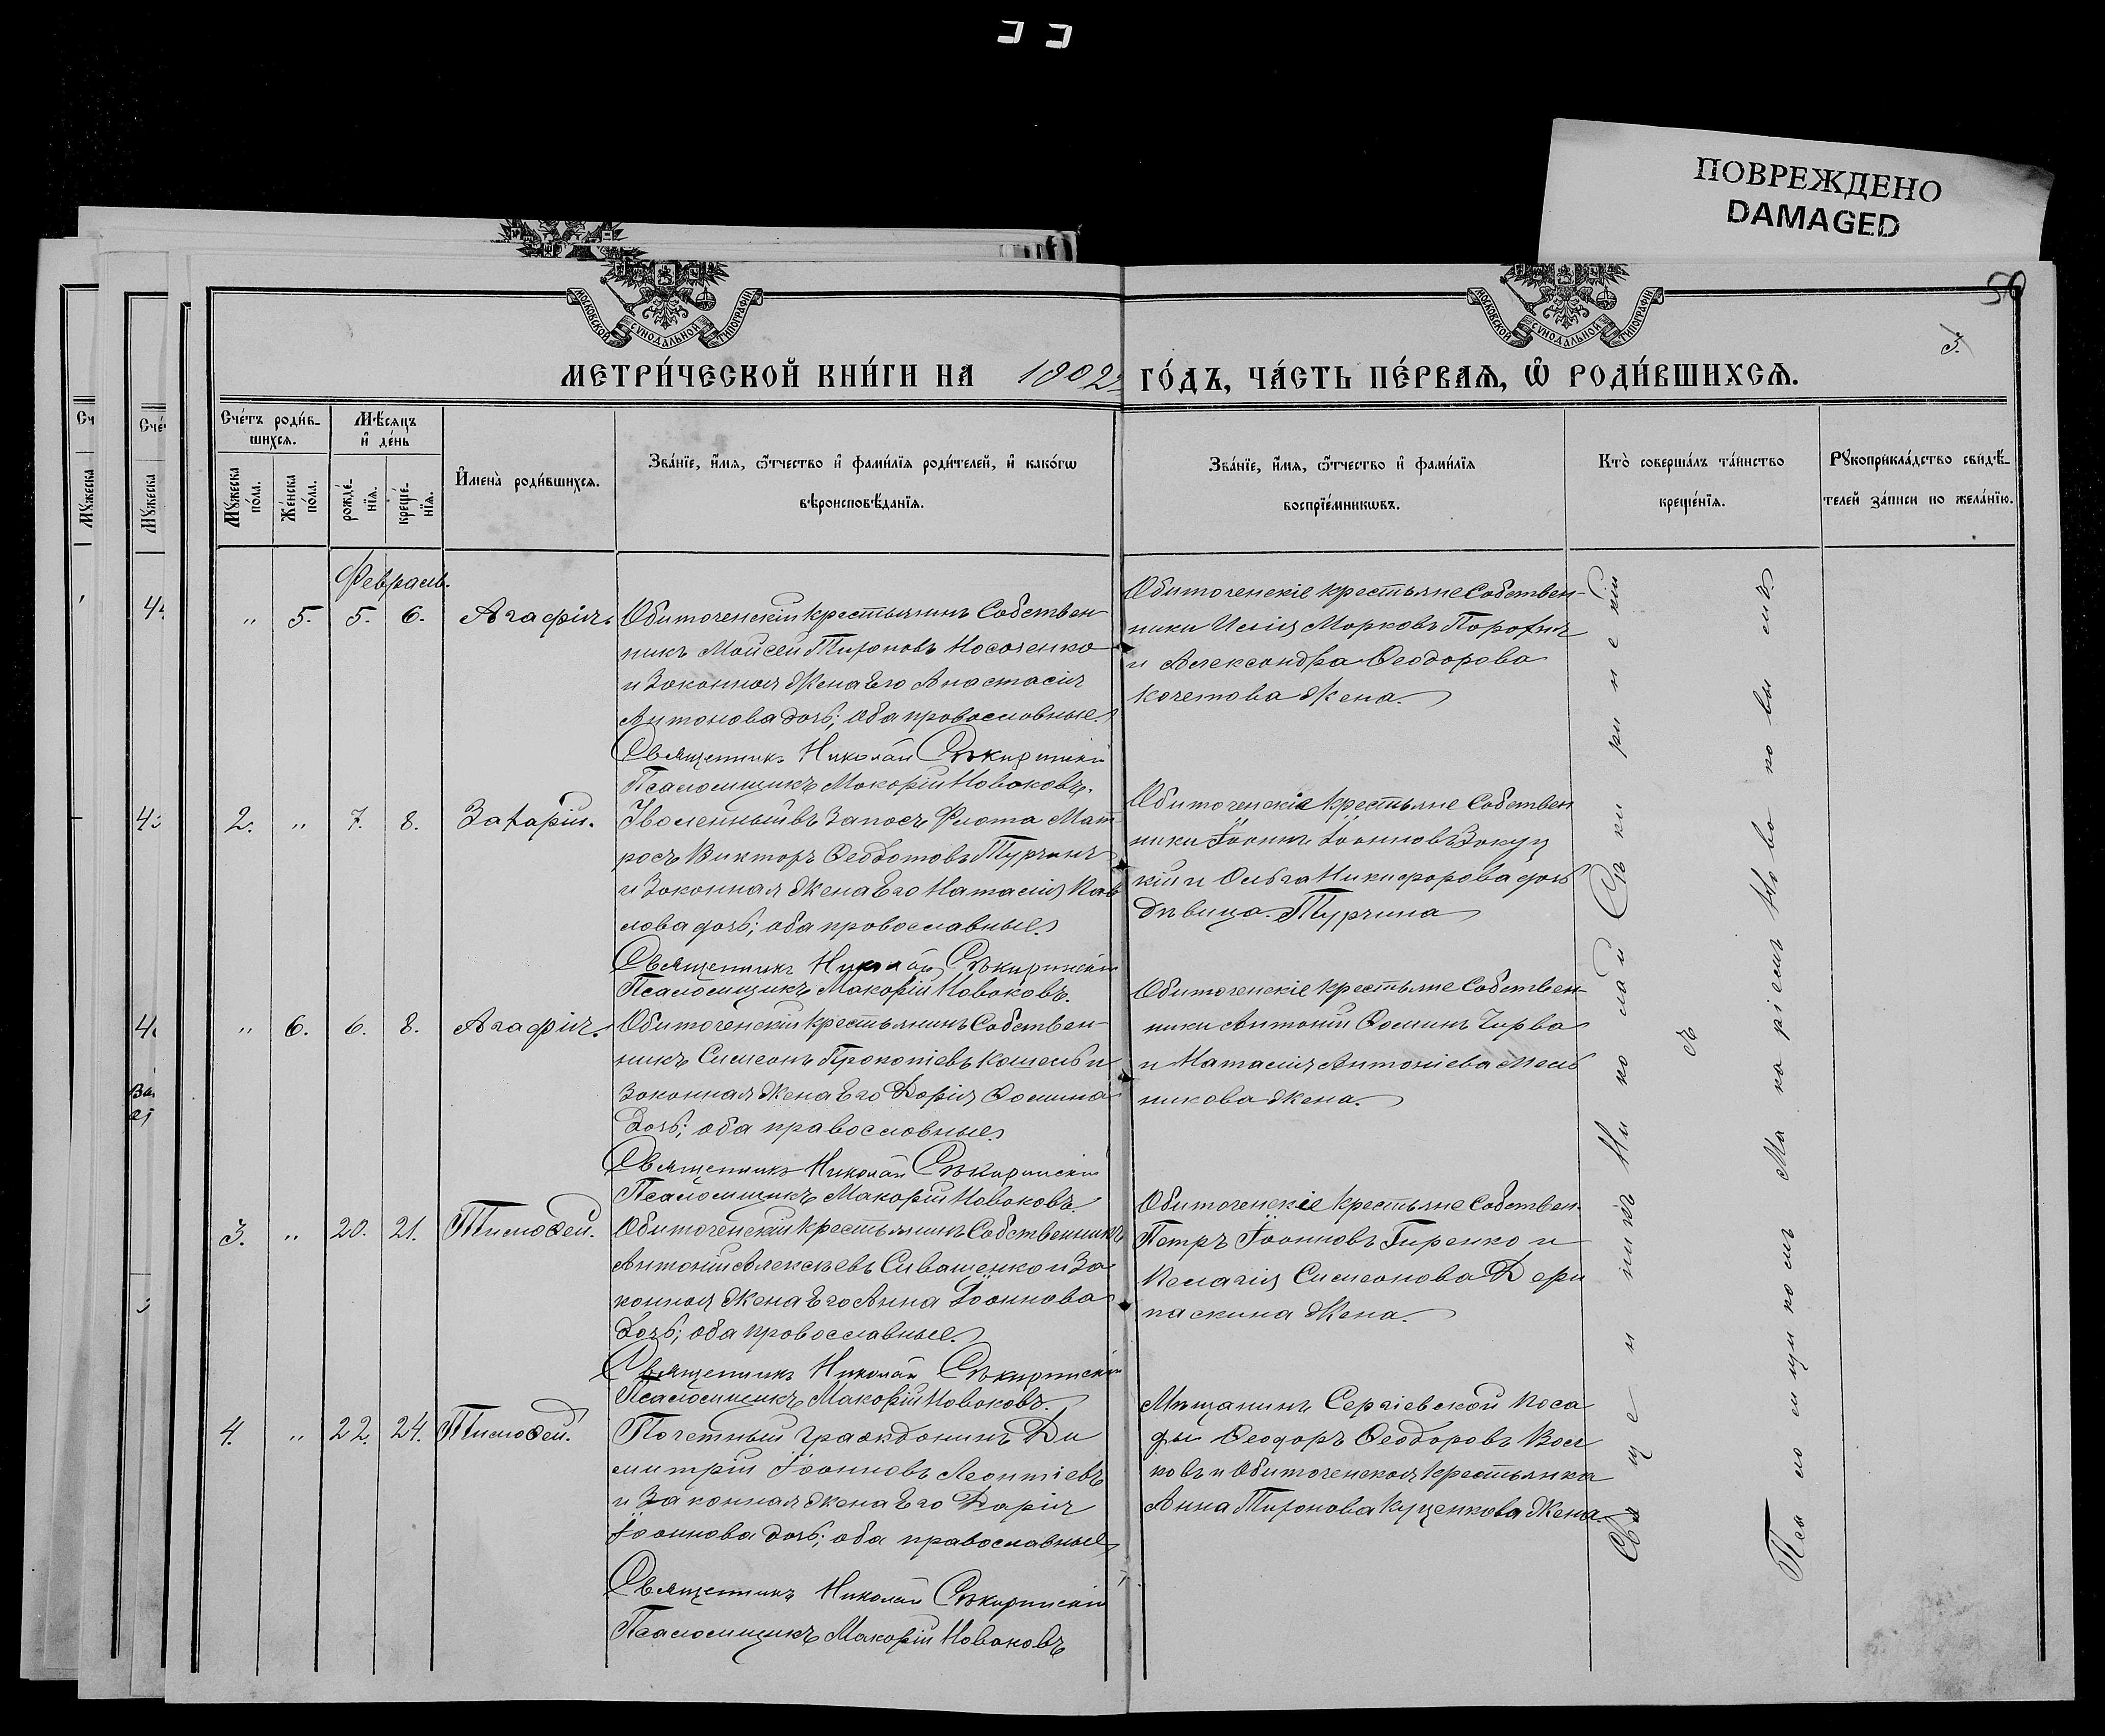 ПОВРЕЖДЕНО
DAMAGED
50
3.
МОСКОВСКОЙ СѴНОДАЛЬНОЙ ТИПОГРАФІИ
МОСКОВСКОЙ СѴНОДАЛЬНОЙ ТИПОГРАФІИ
МЕТРИ́ЧЕСКОЙ КНИ́ГИ НА 1902 ГО́ДЪ, ЧА́СТЬ ПЕ́РВАѦ, Ѡ҆ РОДИ́ВШИХСѦ.
Сче́тъ роди́в-
шихсѧ.
Мꙋ́жеска по́ла.
Же́нска по́ла.
Мѣ́сѧцъ и҆ де́нь
рожде́-нїѧ.
креще́-нїѧ.
И҆мена̀ роди́вшихсѧ.
Зва́нїе, и҆́мѧ, ѻ҆́тчество и҆ фами́лїѧ роди́телей, и҆ како́гѡ
вѣроисповѣ́данїѧ.
Зва́нїе, и҆́мѧ, ѻ҆́тчество и҆ фами́лїѧ
воспрїе́мникѡвъ.
Кто̀ соверша́лъ та́инство
креще́нїѧ.
Рꙋкоприкла́дство свидѣ́-
телей за́писи по жела́нїю.
Февраль.
" 5. 5. 6. Агафія.
Обиточенскій крестьянинъ Собствен-
никъ Моисей Тихоновъ Носаченко
и Законная Жена Его Анастасія
Антонова дочь; оба православные.
Священникъ Николай Сѣкиринскій
Псаломщикъ Макарій Новаковъ.
Обиточенскіе крестьяне Собствен-
ники Илія Марковъ
и Александра Ѳеодорова
Кочетова Жена.
2. " 7. 8. Захарій.
Уволенный въ Запасъ Флота Мат-
росъ Викторъ Ѳеодотовъ Турчинъ
и Законная Жена Его Наталія Пав
лова дочь; оба православные.
Священникъ Николай Сѣкиринскій
Псаломщикъ Макарій Новаковъ.
Обиточенскіе крестьяне Собствен
ники Іоаннъ Іоанновъ
кій и Ольга Никифорова дочь
дѣвица Турчина
" 6. 6. 8. Агафія.
Обиточенскій крестьянинъ Собствен-
никъ Симеонъ Прокопіевъ Кошель и
Законная Жена Его Дарія Ѳомина
Дочь; оба православные.
Священникъ Николай Сѣкиринскій
Псаломщикъ Макарій Новаковъ
Обиточенскіе крестьяне Собствен-
ники Антоній Ѳоминъ Чирва
и Наталія Антоніева Мель
никова Жена.
3. " 20. 21. Тимоѳей.
Обиточенскій крестьянинъ Собственникъ
Антоній Алексѣевъ Сивашенко и За
конная Жена Его Анна Іоаннова
Дочь; оба православные.
Священникъ Николай Сѣкиринскій
Псаломщикъ Макарій Новаковъ.
Обиточенскіе крестьяне Собствен.
Петръ Іоанновъ Гиренко и
Пелагія Симеонова Дери
паскина Жена.
4. " 22. 24. Тимоѳей.
Почетный Гражданинъ Ди
митрій Іоанновъ Леонтіевъ
и Законная Жена Его Дарія
Іоаннова дочь; оба православные
Священникъ Николай Сѣкиринскій
Псаломщикъ Макарій Новаковъ
Мѣщанинъ Сергіевской Поса
ды Ѳеодоръ Ѳеодоровъ Вол
ковъ и Обиточенская крестьянка
Анна Тихонова Куценкова Жена.
Священникъ Николай Сѣкиринскій
съ
Псаломщикомъ Макаріемъ Новаковымъ